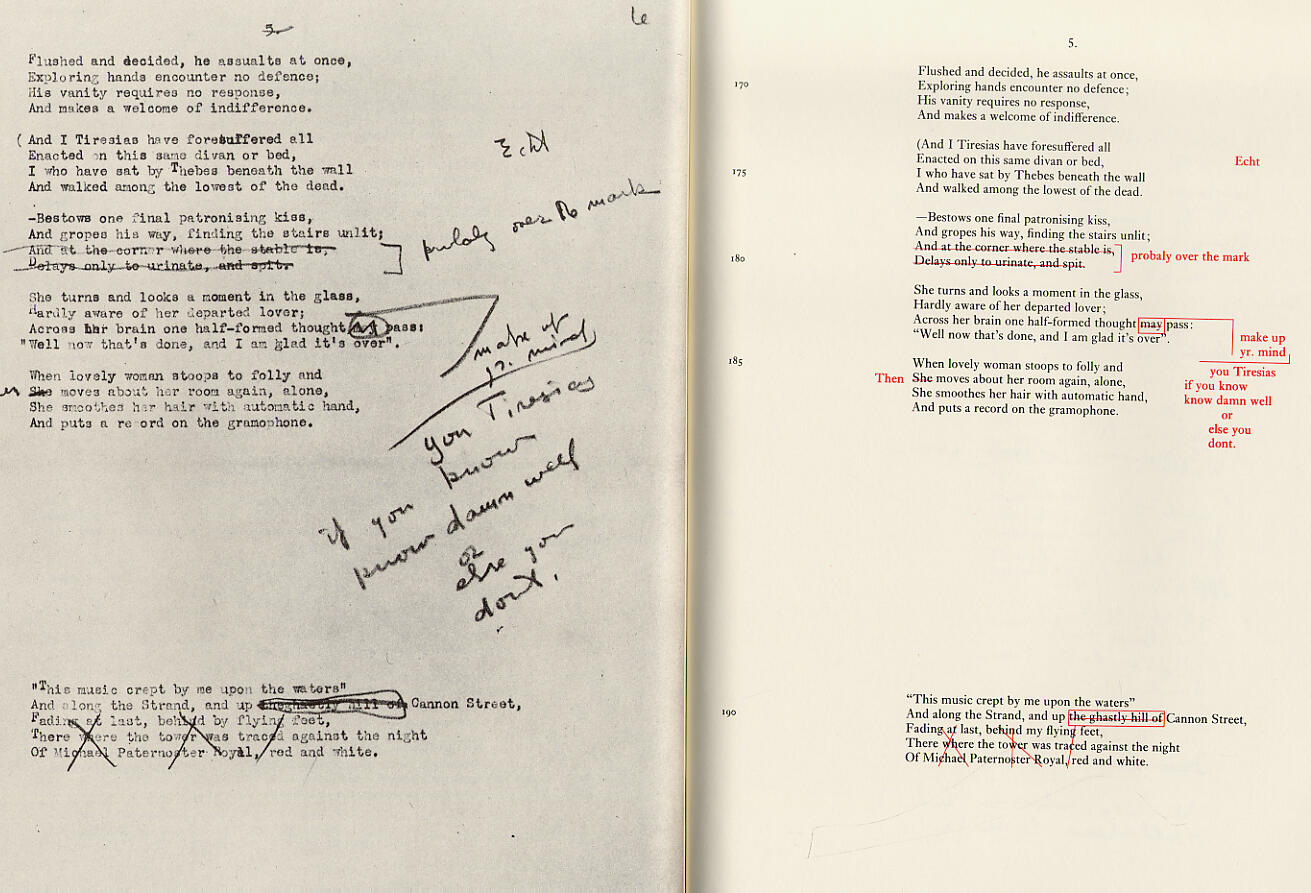 5.
6
Flushed and decided, he assualts at once,
Exploring hands encounter no defence;
His vanity requires no response,
And makes a welcome of indifference.
(And I Tiresias have foresuffered all
Enacted on this same divan or bed,
I who have sat by Thebes beneath the wall
And walked among the lowest of the dead.
Echt
-Bestows one final patronising kiss,
And gropes his way, finding the stairs unlit;
And at the corner where the stable is,
Delays only to urinate, and spit.
probaly over the mark
She turns and looks a moment in the glass,
Hardly aware of her departed lover;
Across her brain one half-formed thought may pass:
"Well now that's done, and I am glad it's over".
make up
yr. mind
When lovely woman stoops to folly and
She moves about her room again, alone,
She smoothes her hair with automatic hand,
And puts a record on the gramophone.
you Tiresias
if you know
know damn well
or
else you
dont.
"This music crept by me upon the waters"
And along the Strand, and up the ghastly hill of Cannon Street,
Fading at last, behind by flying feet,
There where the tower was traced against the night
Of Michael Paternoster Royal, red and white.
5.
170
Flushed and decided, he assaults at once,
Exploring hands encounter no defence;
His vanity requires no response,
And makes a welcome of indifference.
(And I Tiresias have foresuffered all
Enacted on this same divan or bed,
Echt
175
I who have sat by Thebes beneath the wall
And walked among the lowest of the dead.
—Bestows one final patronising kiss,
And gropes his way, finding the stairs unlit;
And at the corner where the stable is,
180
Delays only to urinate, and spit.
probaly over the mark
She turns and looks a moment in the glass,
Hardly aware of her departed lover;
Across her brain one half-formed thought may pass:
"Well now that's done, and I am glad it's over".
make up
yr. mind
185
When lovely woman stoops to folly and
Then She moves about her room again, alone,
She smoothes her hair with automatic hand,
And puts a record on the gramophone.
you Tiresias
if you know
know damn well
or
else you
dont.
"This music crept by me upon the waters"
190
And along the Strand, and up the ghastly hill of Cannon Street,
Fading at last, behind my flying feet,
There where the tower was traced against the night
Of Michael Paternoster Royal, red and white.